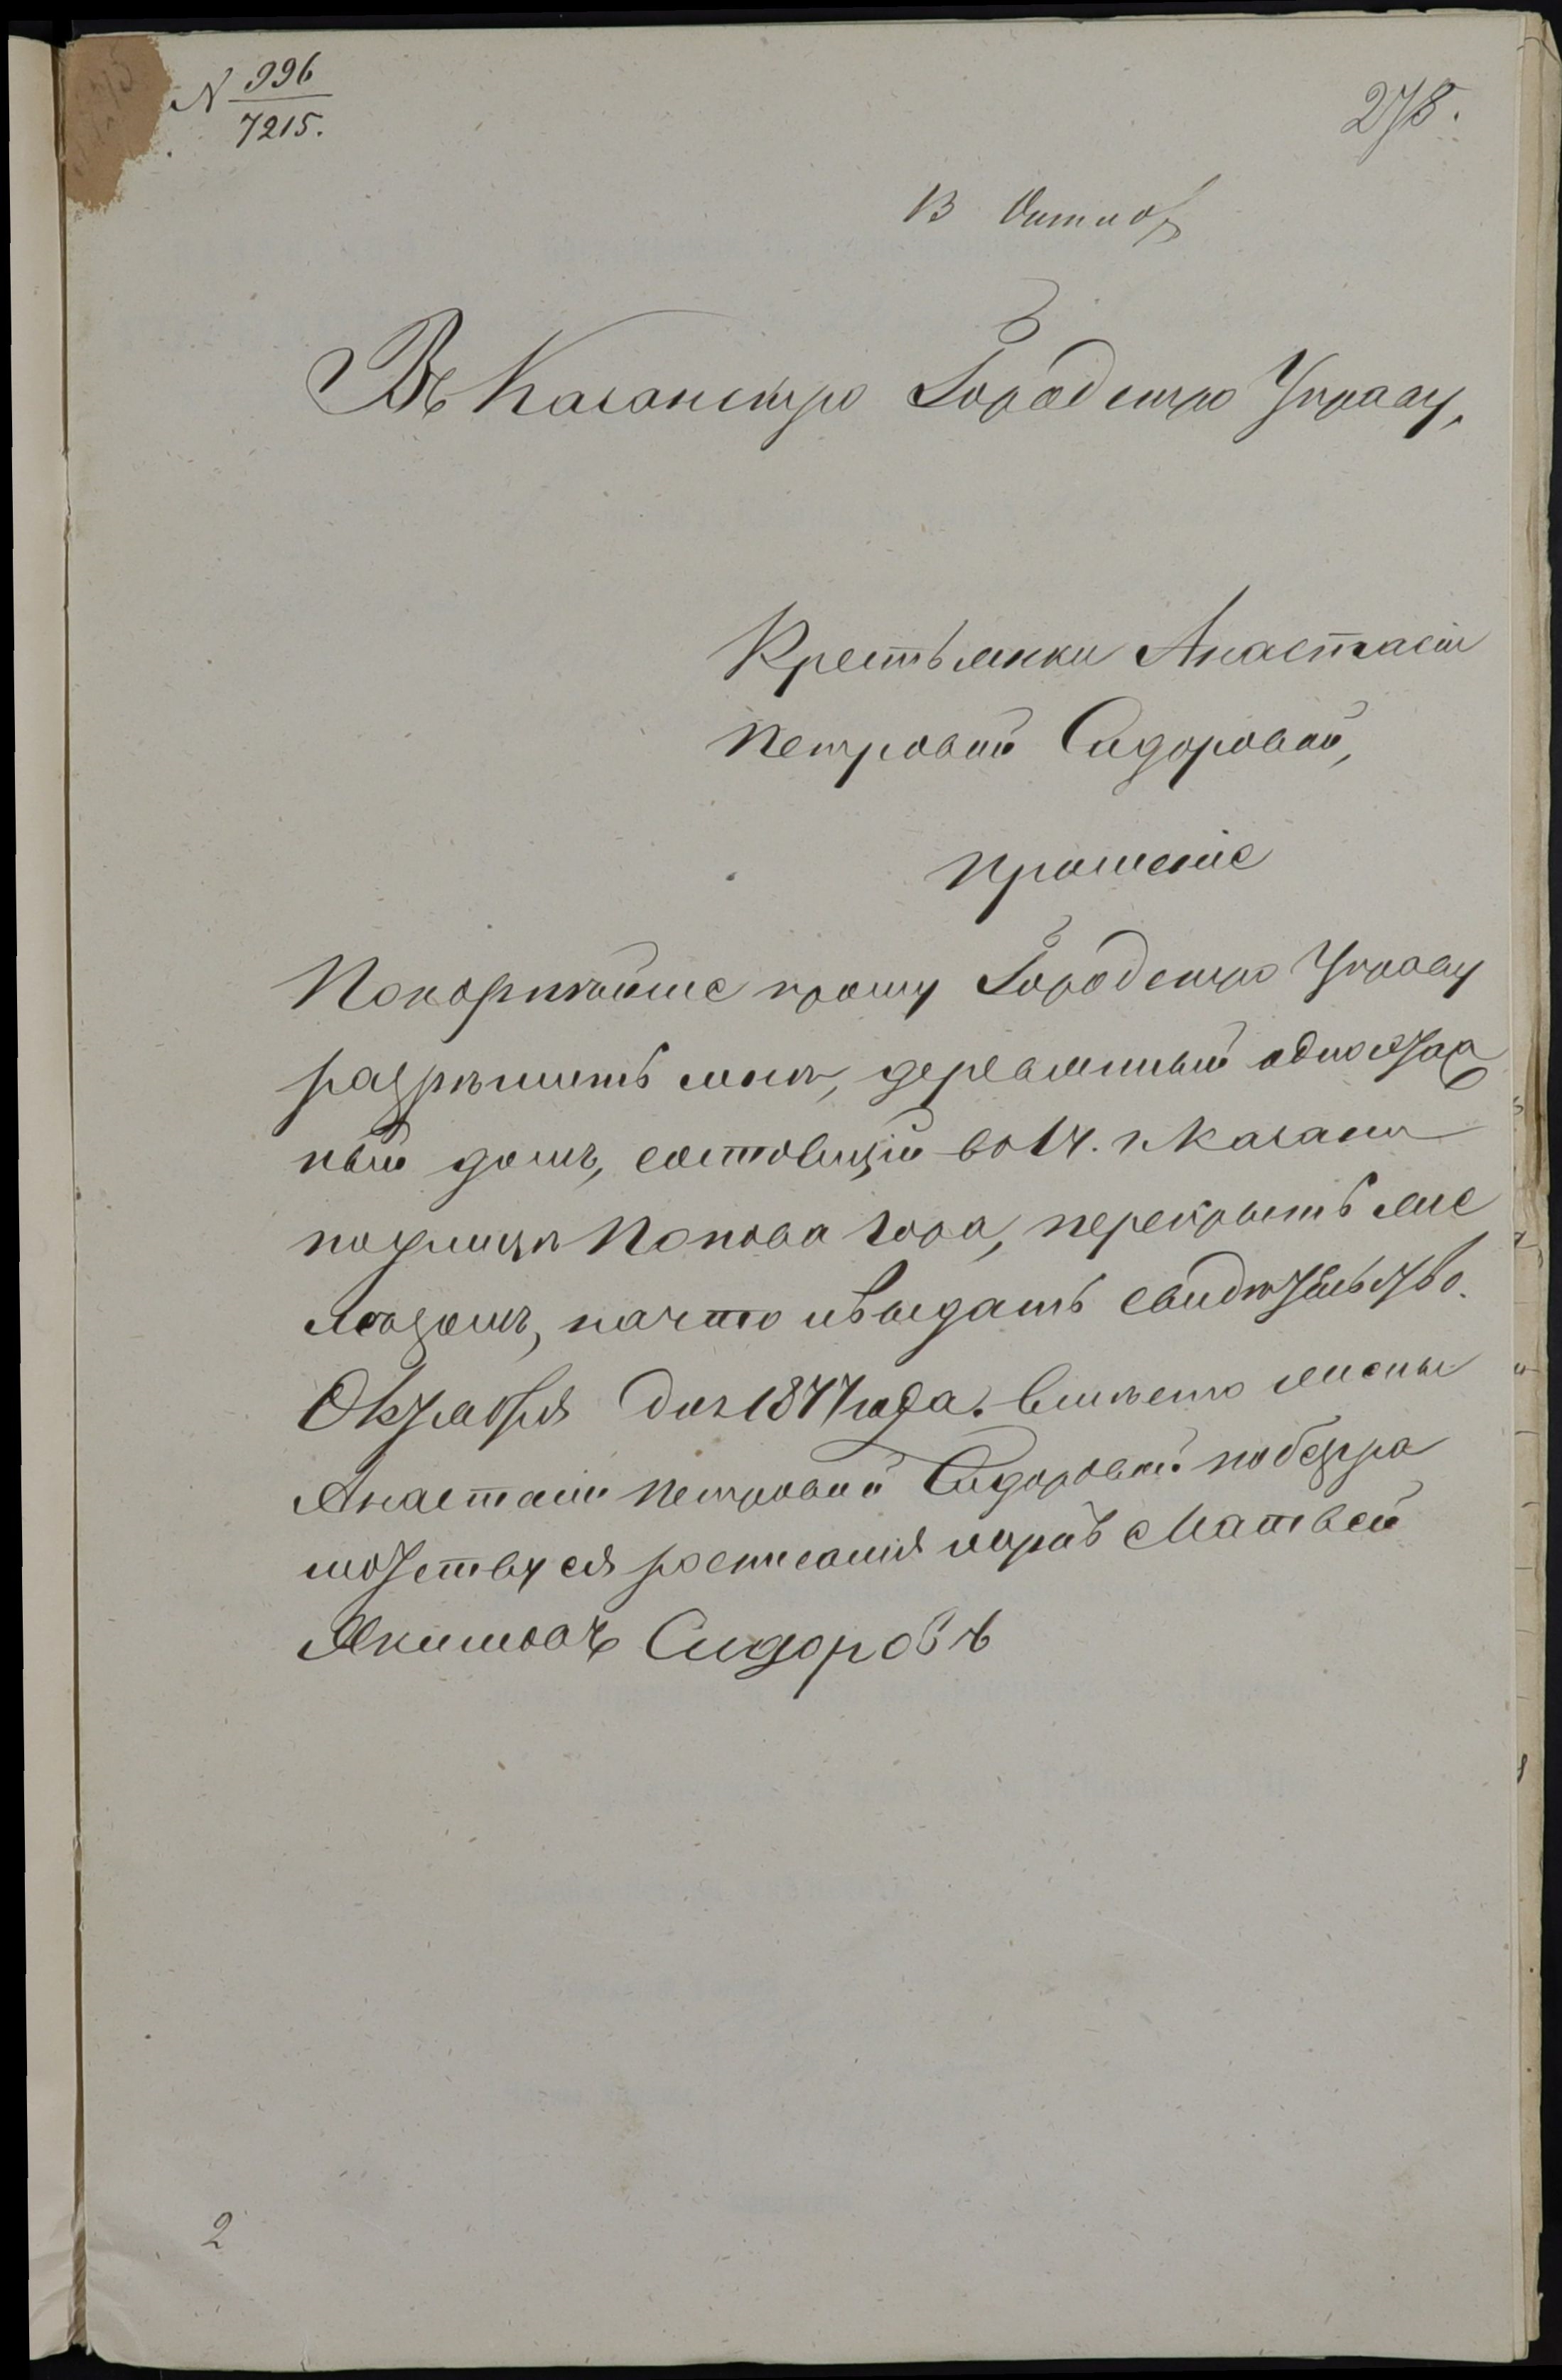 N 996
7215.
278.
13 Октяб
Въ Казанскую Городскую Управу,
Крестьянки Анастасіи
Петровой Сидоровой,
Прошеніе
Покорнѣйше прошу Городскую Управу
разрѣшить мнѣ, деревянный одноэтаж
ный домъ, состоящій во 1 ч. г. Казани
по улицѣ Попова гора, перекрыть же
лѣзомъ, на что и выдать свидѣтельство.
Октября дня 1877 года. Вмѣсто жены
Анастасіи Петровой Сидоровой по безгра
мотству ея росписался мужъ Матвей
Якимовъ Сидоровъ
2